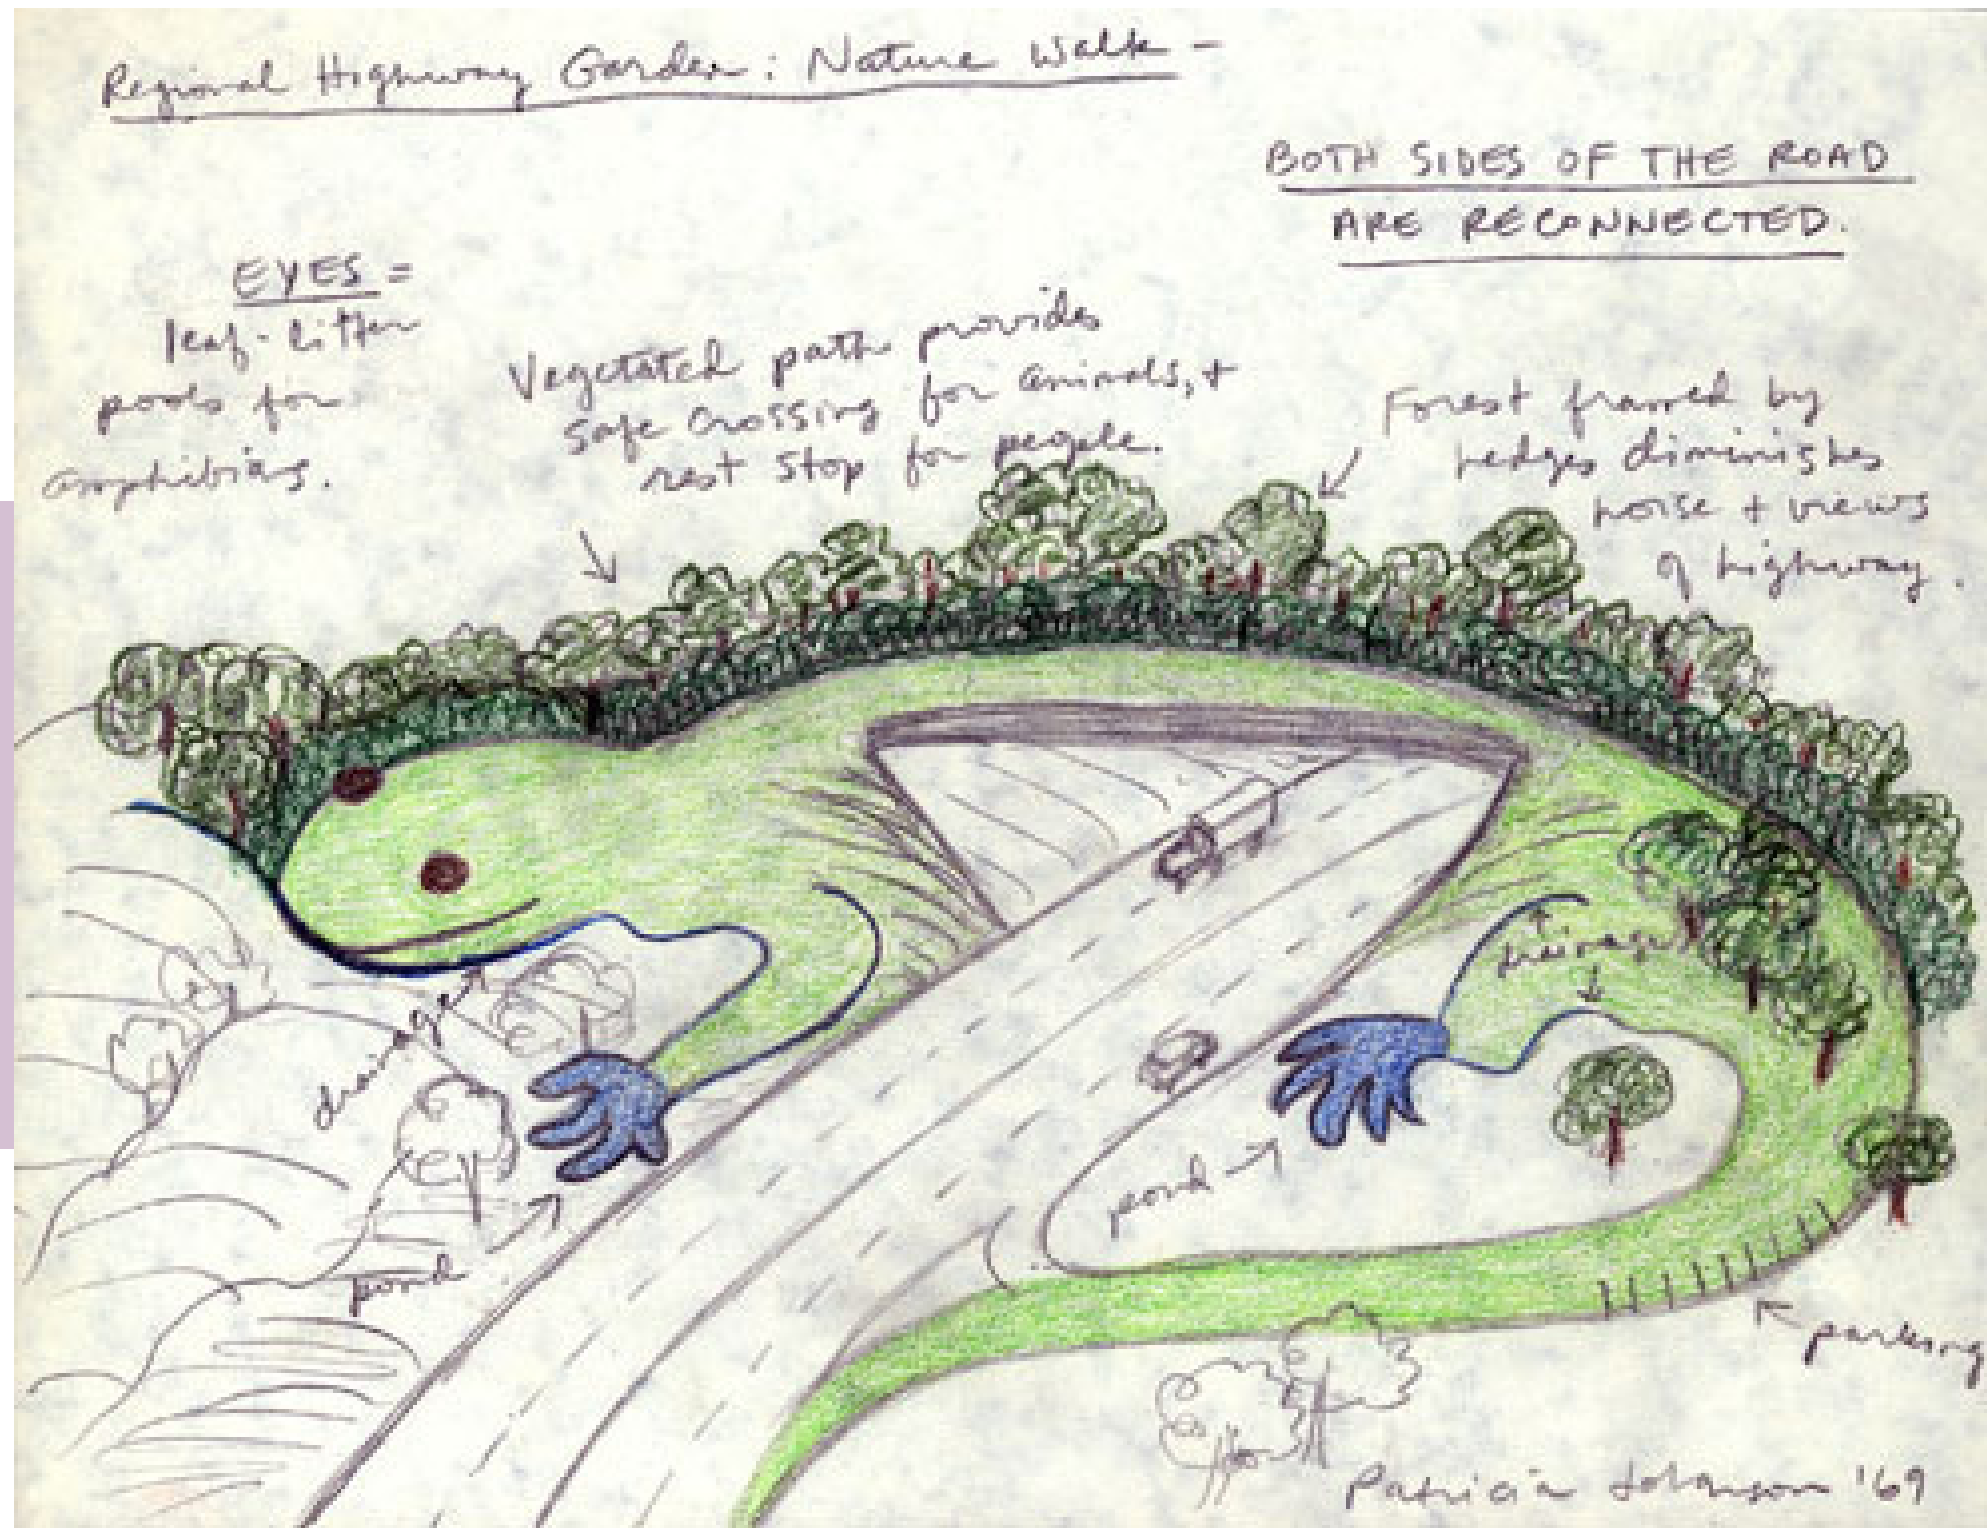 Regional Highway Garden: Nature Walk -
BOTH SIDES OF THE ROAD
ARE RECONNECTED.
EYES =
leaf-litter
pools for
amphibians.
Vegetated path provides
safe crossing for animals, +
rest stop for people.
Forest framed by
hedges diminishes
noise + views
of highway.
drainage
drainage
pond
pond
parking
Patricia Johanson '69